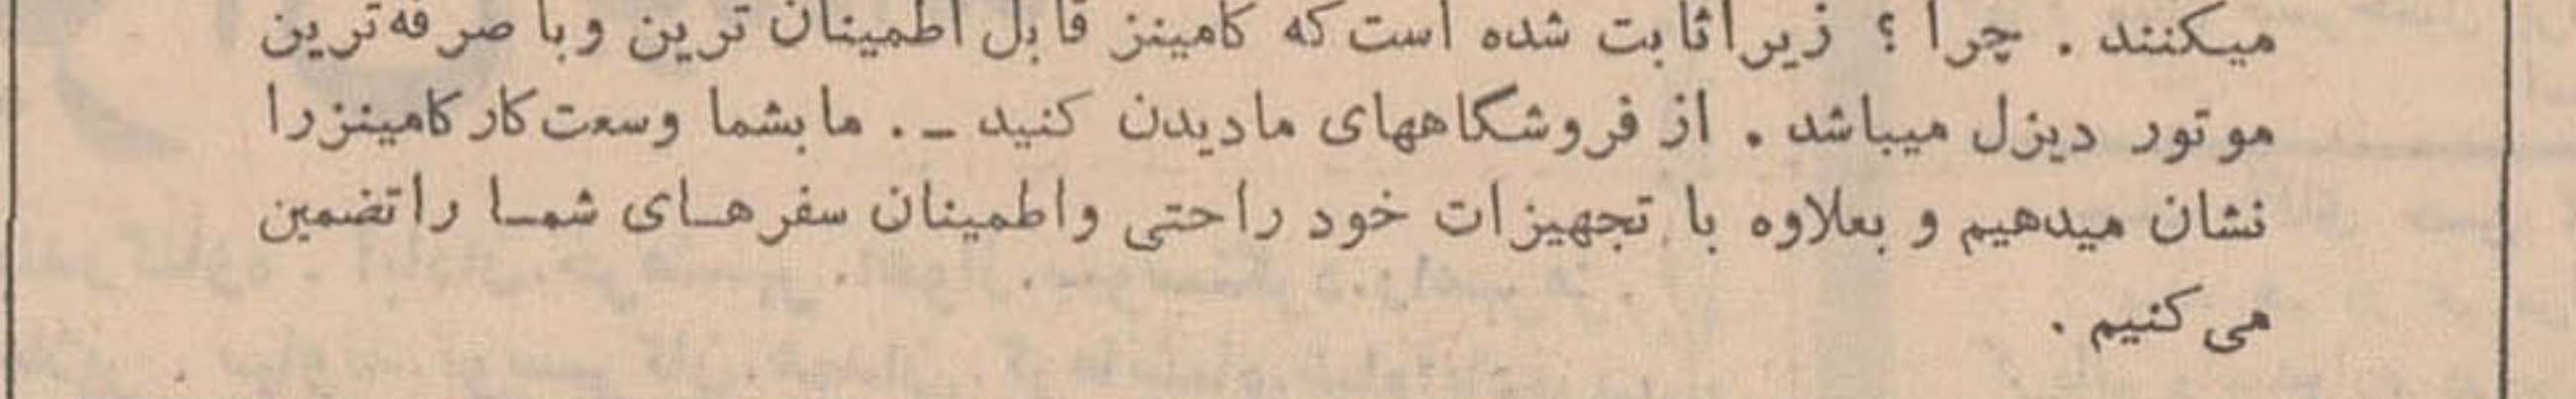 میکنند . چرا ؟ زیرا ثابت شده است که کامینز قابل اطمینان ترین و با صرفه‌ترین
موتور دیزل میباشد . از فروشگاههای ما دیدن کنید ـ . ما بشما وسعت کار کامینز را
نشان میدهیم و بعلاوه با تجهیزات خود راحتی و اطمینان سفرهـای شمـا را تضمین
می کنیم .